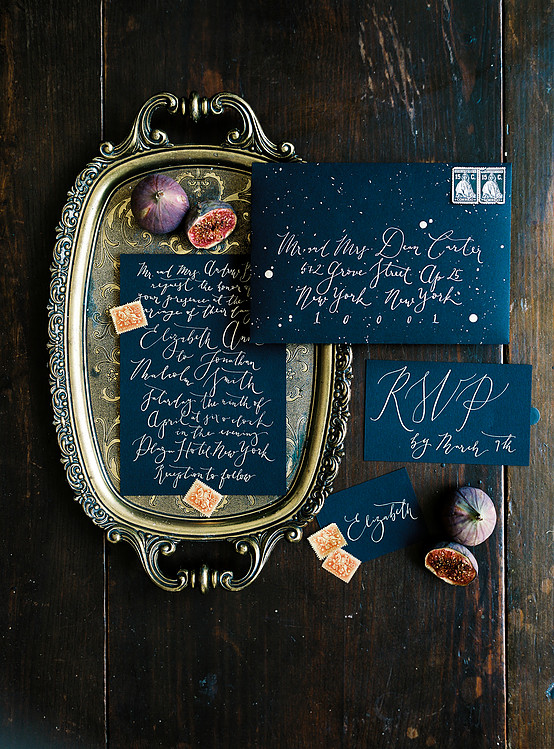 Mr. and Mrs. Andrew B
request the honor
your presence at the
marriage of their
Elizabeth Ann
to Jonathan
Malcolm Smith
Saturday, the ninth of
April at six o'clock
in the evening
Plaza Hotel New York
Reception to follow
Mr. and Mrs. Dean Carter
512 Grove Street Ap 25
New York New York
10001
15 C.
15 C.
RSVP
by March 7th
Elizabeth